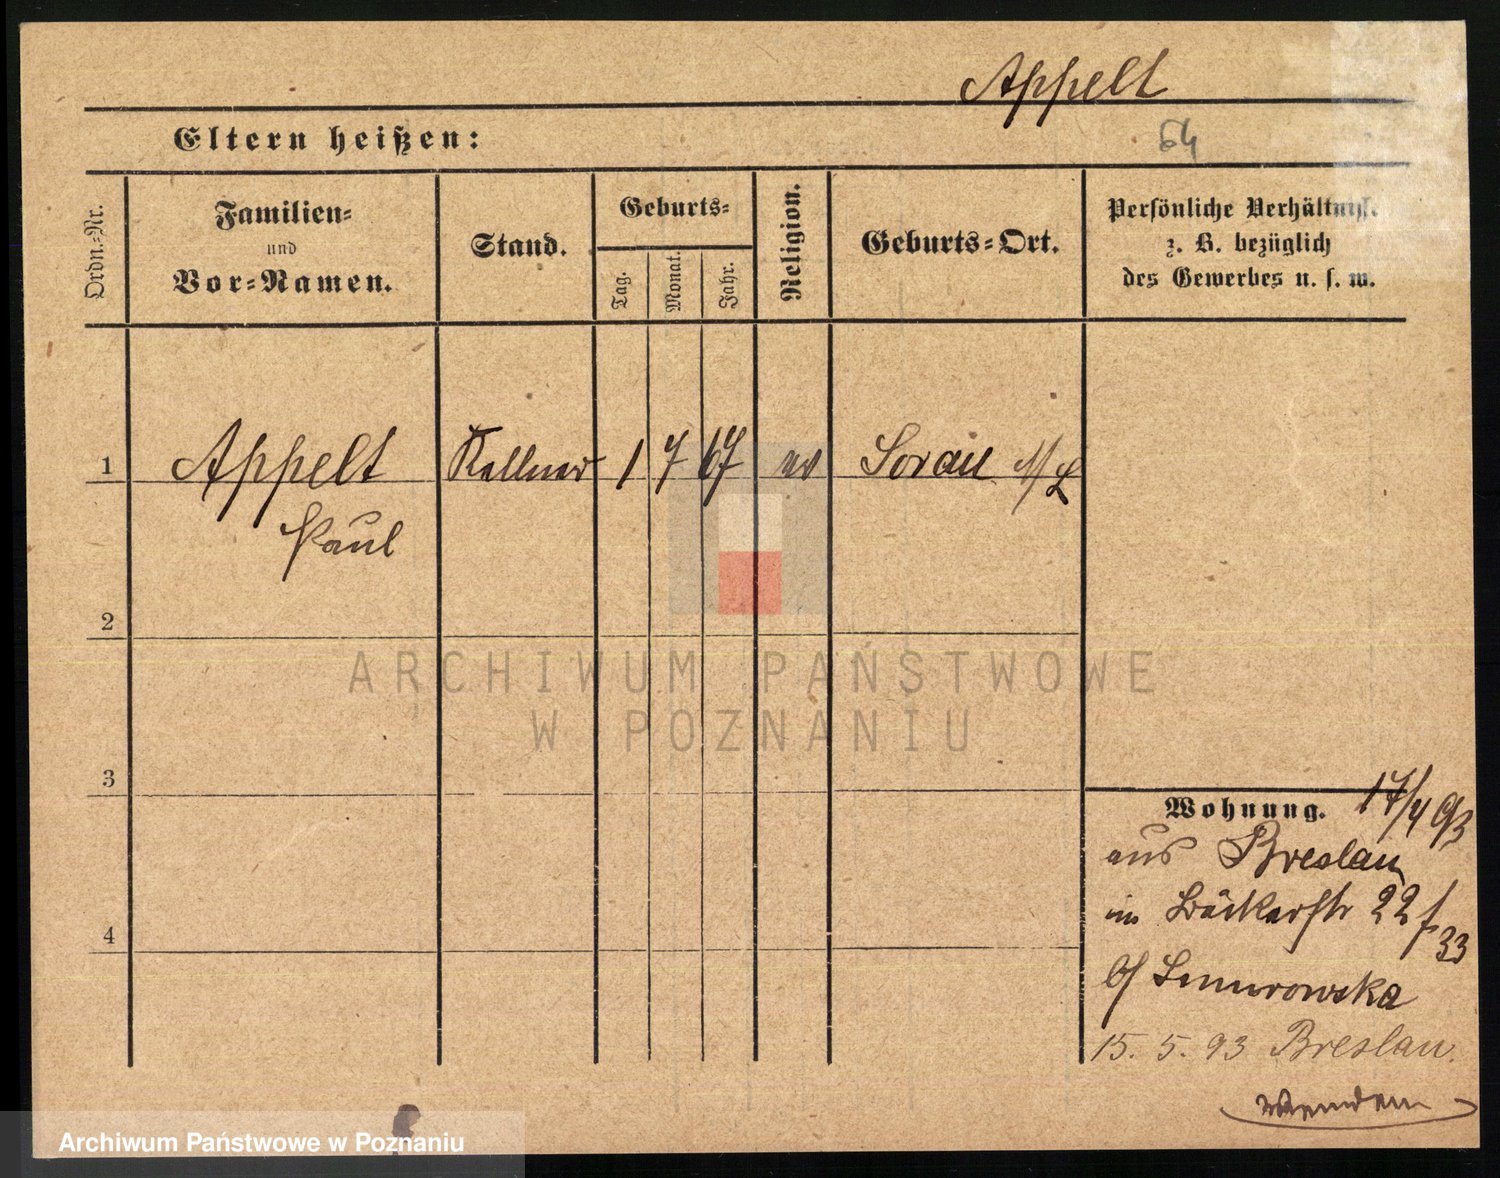 Appelt
54
Eltern heißen:
Ordn.-Nr.
Familien-
und
Vor-Namen.
Stand.
Geburts-
Tag.
Monat.
Jahr.
Religion.
Geburts-Ort.
Persönliche Verhältniss.
z. B. bezüglich
des Gewerbes u. s. w.
1 Appelt Kellner 1 7 67 ev Sorau N/L
Paul
2
3
4
Wohnung. 17/4 93
aus Breslau
in Bäckerstr 22 f
33
15. 5. 93 Breslau.
Wenden
ARCHIWUM PAŃSTWOWE
W POZNANIU
Archiwum Państwowe w Poznaniu